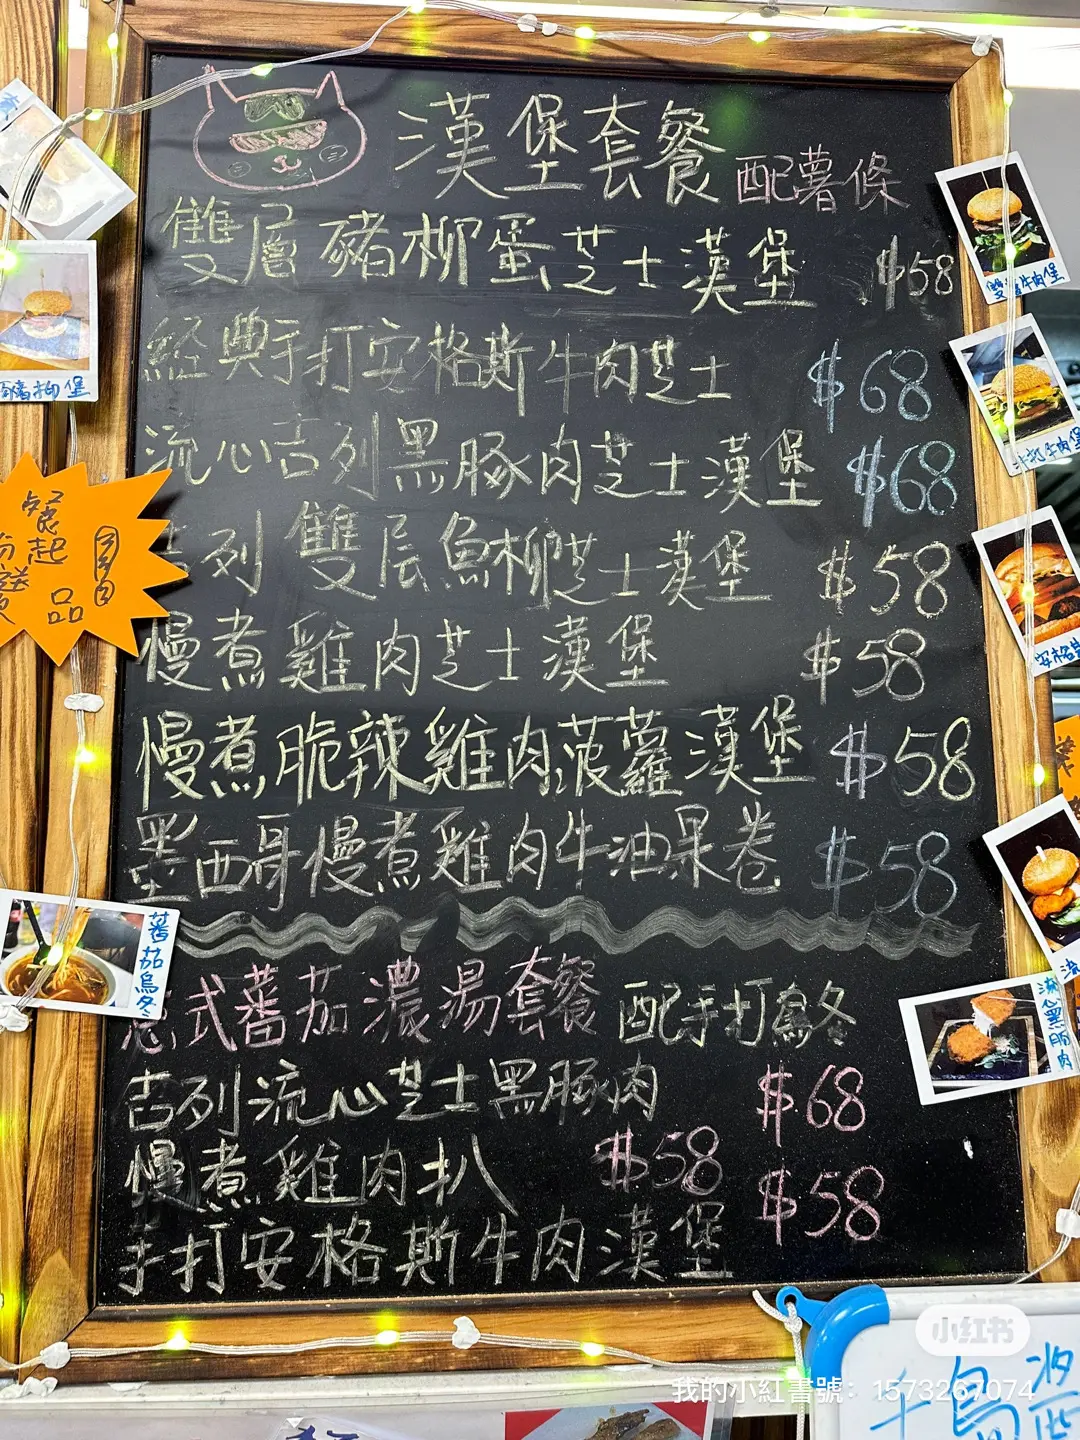 漢堡套餐 配薯條
雙層豬柳蛋芝士漢堡 $58
經典手打安格斯牛肉芝士 $68
流心吉列黑豚肉芝士漢堡 $68
吉列雙层魚柳芝士漢堡 $58
慢煮雞肉芝士漢堡 $58
慢煮脆辣雞肉菠蘿漢堡 $58
墨西哥慢煮雞肉牛油果卷 $58
意式蕃茄濃湯套餐 配手打烏冬
吉列流心芝士黑豚肉 $68
慢煮雞肉扒 $58
$58
手打安格斯牛肉漢堡
豬柳堡
餐
起
品
蕃茄烏冬
雙層牛肉堡
牛肉堡
安格
流
流心黑豚肉
小红书
我的小紅書號：1573267074